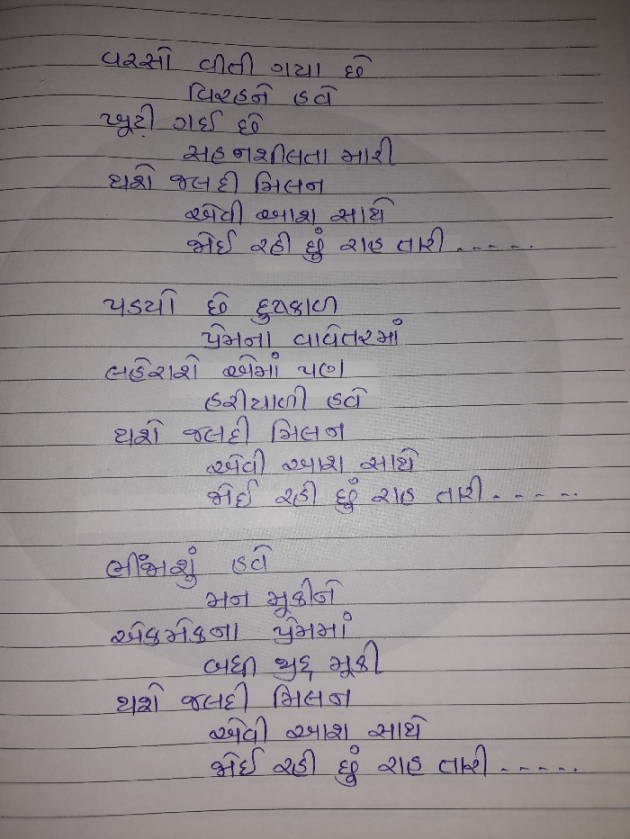 વરસો વીતી ગયા છે
વિરહને હવે
ખૂટી ગઈ છે
સહનશીલતા મારી
થશે જલદી મિલન
એવી આશ સાથે
જોઈ રહી છું રાહ તારી.....
પડયો છે દુષ્કાળ
પ્રેમના વાવેતરમાં
લહેરાશે એમાં પણ
હરીયાળી હવે
થશે જલદી મિલન
એવી આશ સાથે
જોઈ રહી છું રાહ તારી.....
ભીંજાશું હવે
મન મૂકીને
એકમેકના પ્રેમમાં
બધી મૂકી
થશે જલદી મિલન
એવી આશ સાથે
જોઈ રહી છું રાહ તારી.....